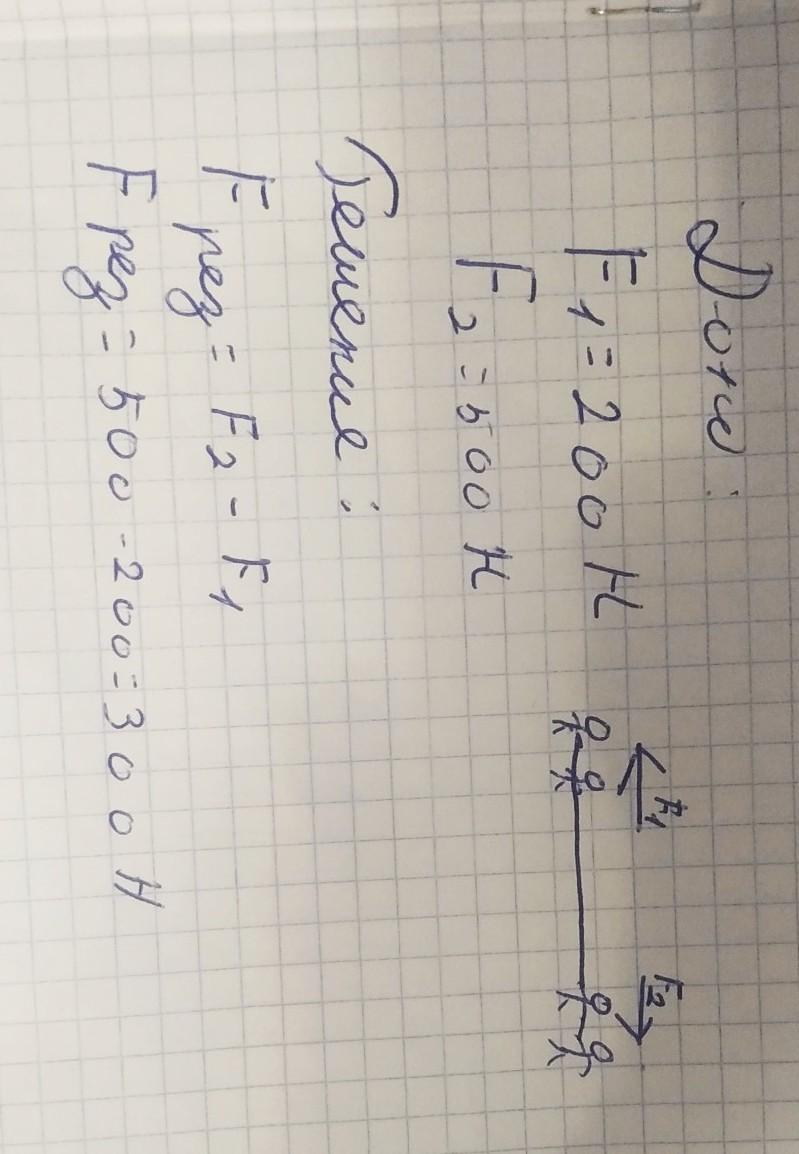 Дано:
F1 = 200 Н
F2 = 500 Н
F1
F2
Решение:
F рез = F2 - F1
F рез = 500 - 200 = 300 Н